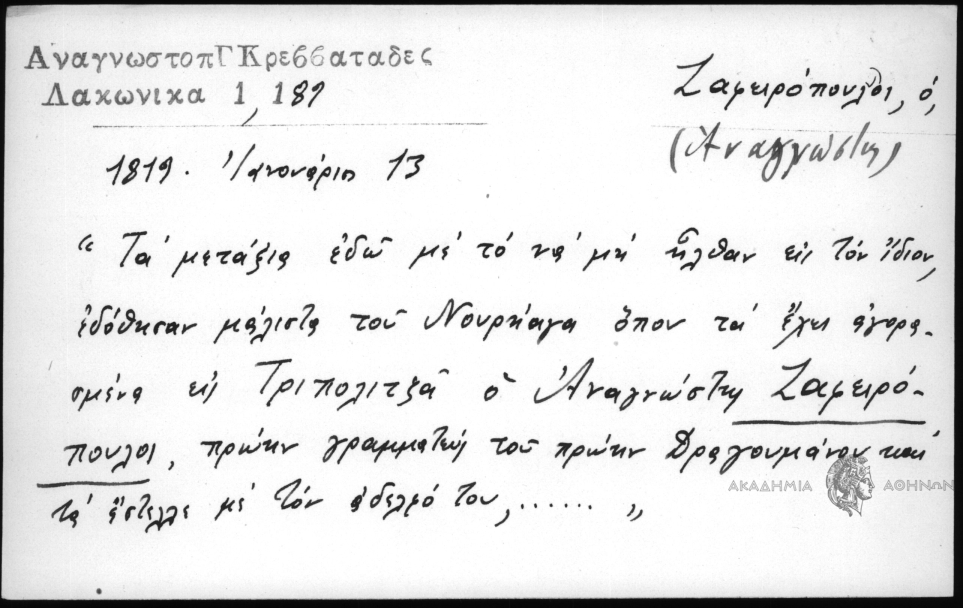 ΑναγνωστοπΓΚρεββαταδες
Λακωνικα 1, 189
Ζαφειρόπουλος, ὁ,
(Ἀναγνώστης)
1819. Ἰανουάριος 13
“ Τά μετάξια ἐδῶ μέ τό νά μή ἦλθαν εἰς τόν ἴδιον,
ἐδόθησαν μάλιστα τοῦ Νουρήαγα ὅπου τά ἔχει ἀγορα-
σμένα εἰς Τριπολιτζᾶ ὁ Ἀναγνώστης Ζαφειρό-
πουλος, πρώην γραμματεύς τοῦ πρώην Δραγουμάνου καί
τά ἔστελλε μέ τόν ἀδελφό του, ...... „
ΑΚΑΔΗΜΙΑ ΑΘΗΝΩΝ